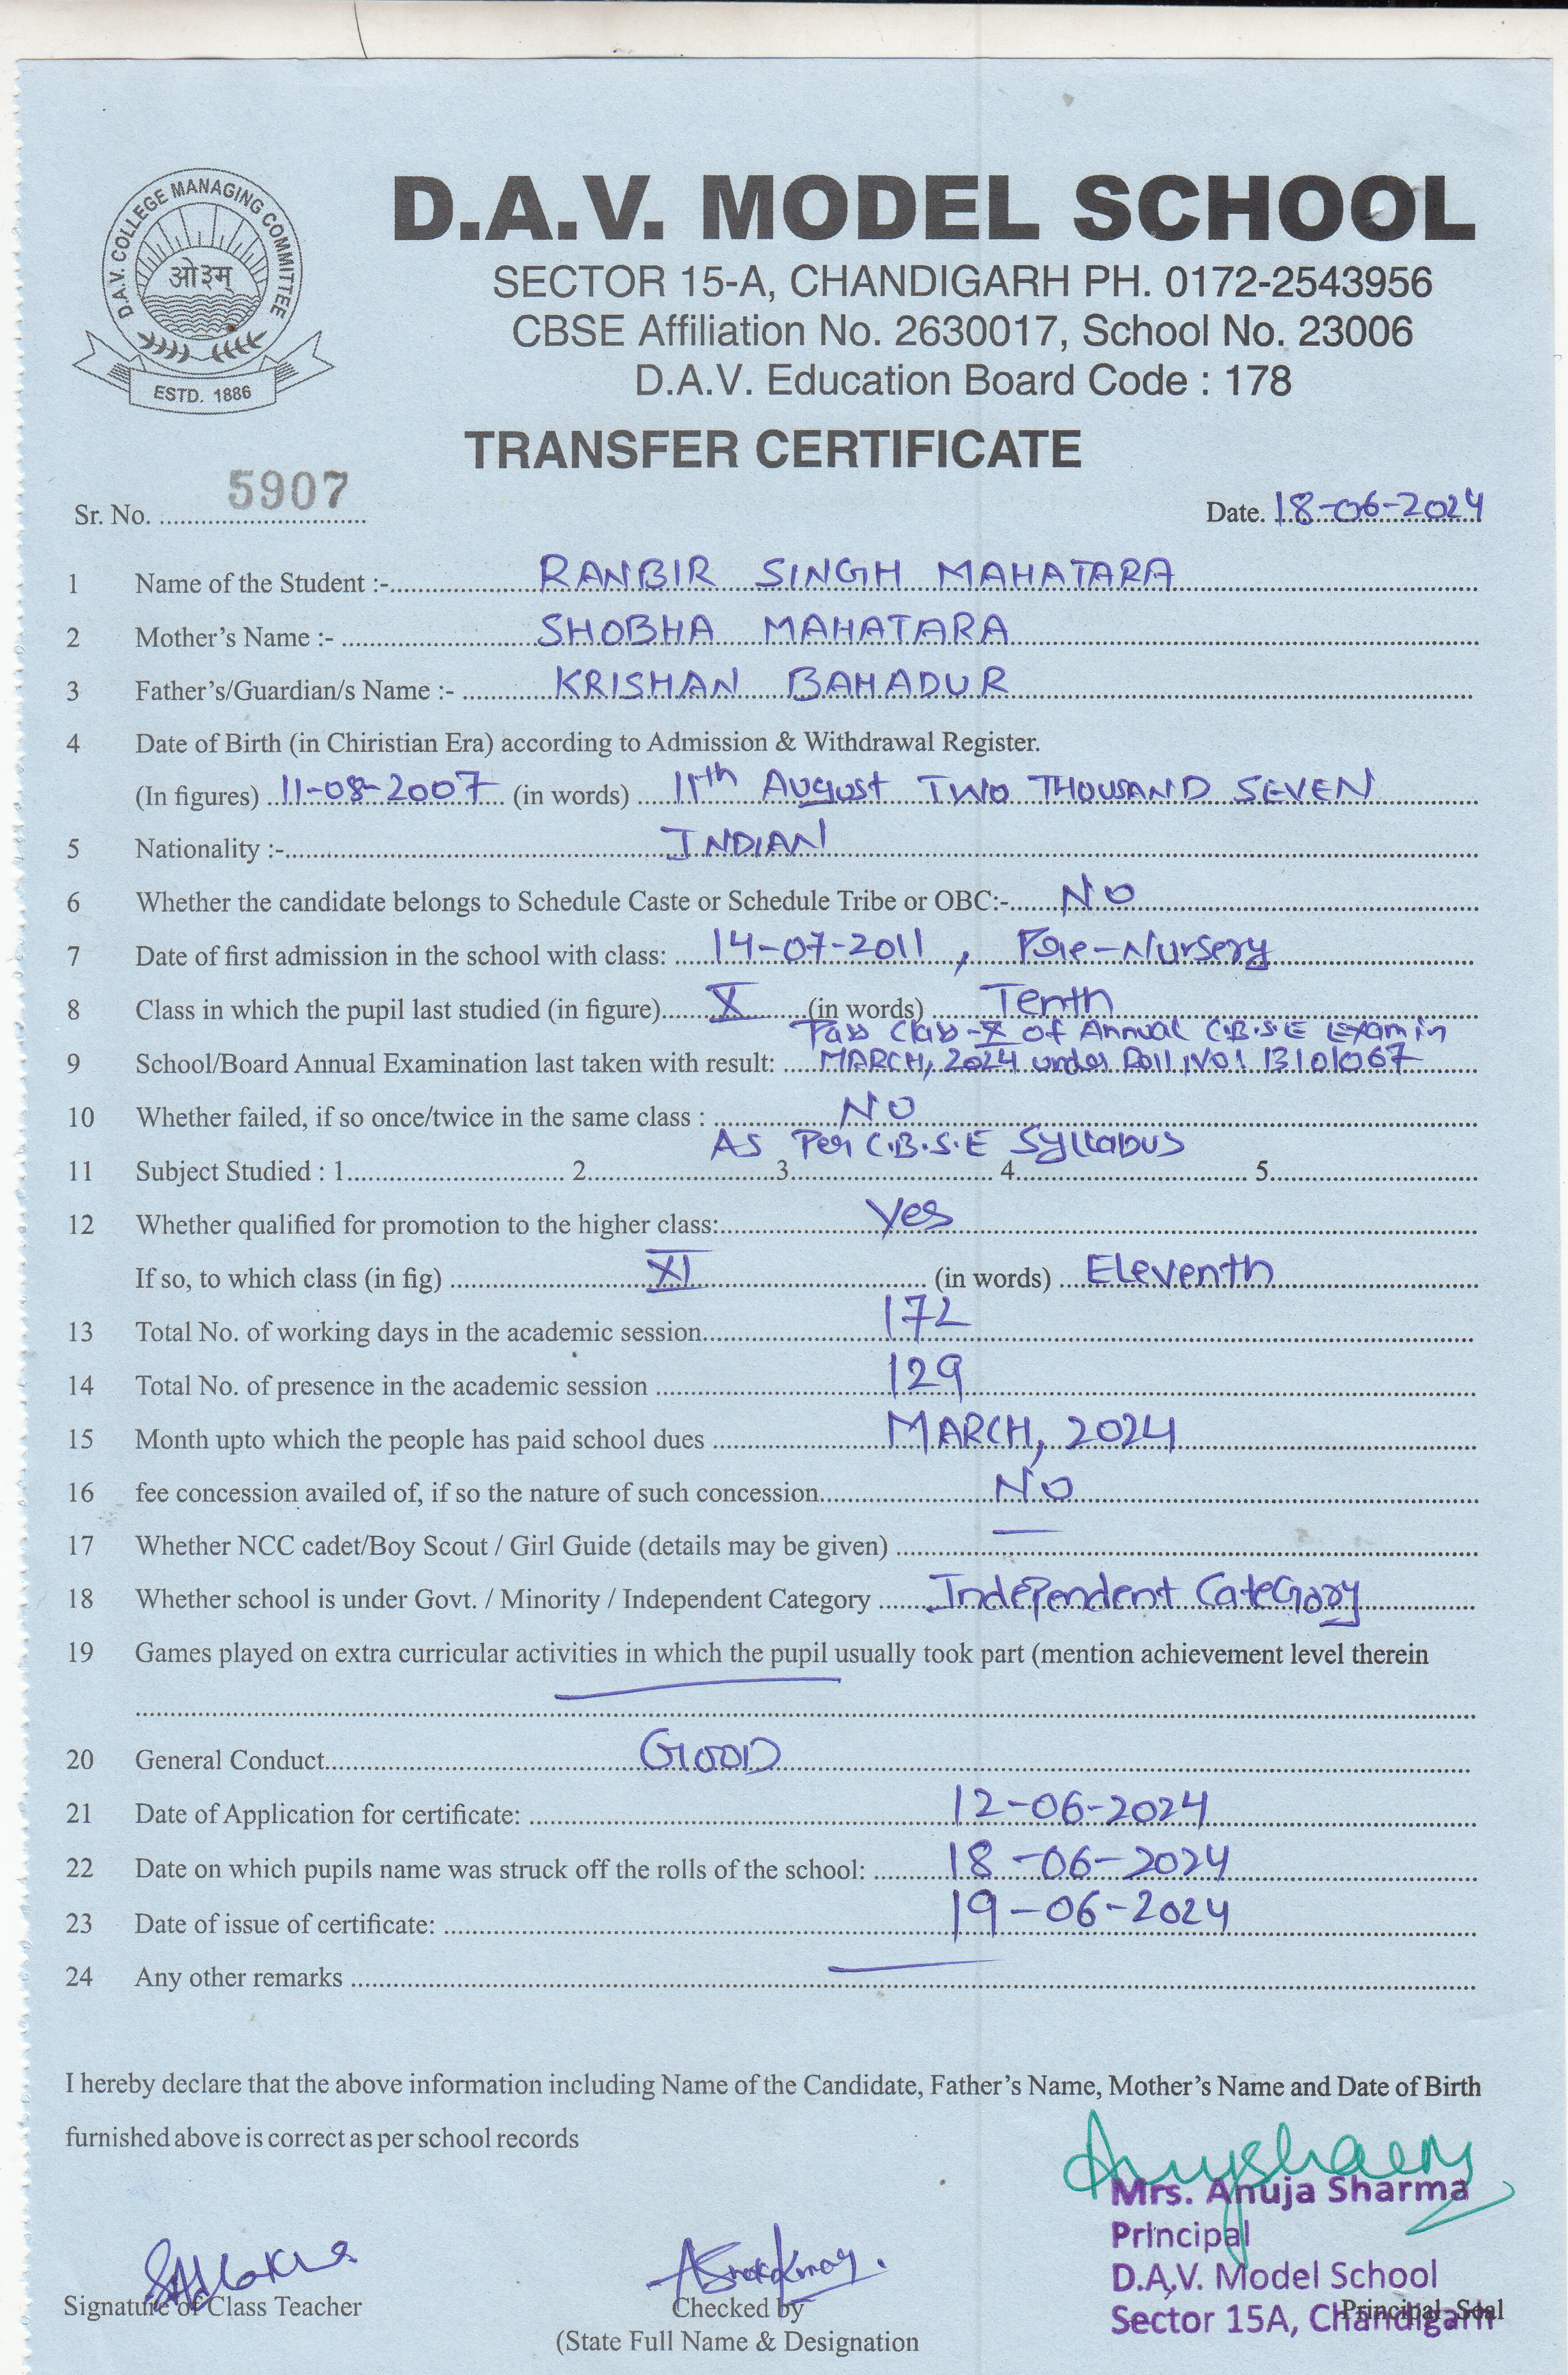 D.A.V. COLLEGE MANAGING COMMITTEE
ओ३म्
ESTD. 1886
D.A.V. MODEL SCHOOL
SECTOR 15-A, CHANDIGARH PH. 0172-2543956
CBSE Affiliation No. 2630017, School No. 23006
D.A.V. Education Board Code : 178
TRANSFER CERTIFICATE
Sr. No. 5907 Date. 18-06-2024
1 Name of the Student :- RANBIR SINGH MAHATARA
2 Mother's Name :- SHOBHA MAHATARA
3 Father's/Guardian/s Name :- KRISHAN BAHADUR
4 Date of Birth (in Chiristian Era) according to Admission & Withdrawal Register.
(In figures) 11-08-2007 (in words) 11th August TWO THOUSAND SEVEN
5 Nationality :- INDIAN
6 Whether the candidate belongs to Schedule Caste or Schedule Tribe or OBC:- NO
7 Date of first admission in the school with class: 14-07-2011, Pre-Nursery
8 Class in which the pupil last studied (in figure) X (in words) Tenth
Pass Class-X of Annual C.B.S.E Exam in
9 School/Board Annual Examination last taken with result: MARCH, 2024 under Roll No: 13101067
10 Whether failed, if so once/twice in the same class : NO
As Per C.B.S.E Syllabus
11 Subject Studied : 1 2 3 4 5
12 Whether qualified for promotion to the higher class: Yes
If so, to which class (in fig) XI (in words) Eleventh
13 Total No. of working days in the academic session 172
14 Total No. of presence in the academic session 129
15 Month upto which the people has paid school dues MARCH, 2024
16 fee concession availed of, if so the nature of such concession NO
17 Whether NCC cadet/Boy Scout / Girl Guide (details may be given) —
18 Whether school is under Govt. / Minority / Independent Category Independent Category
19 Games played on extra curricular activities in which the pupil usually took part (mention achievement level therein
20 General Conduct GOOD
21 Date of Application for certificate: 12-06-2024
22 Date on which pupils name was struck off the rolls of the school: 18-06-2024
23 Date of issue of certificate: 19-06-2024
24 Any other remarks —
I hereby declare that the above information including Name of the Candidate, Father's Name, Mother's Name and Date of Birth
furnished above is correct as per school records
Mrs. Anuja Sharma
Principal
D.A.V. Model School
Sector 15A, Chandigarh
Signature of Class Teacher
Checked by
Principal Seal
(State Full Name & Designation